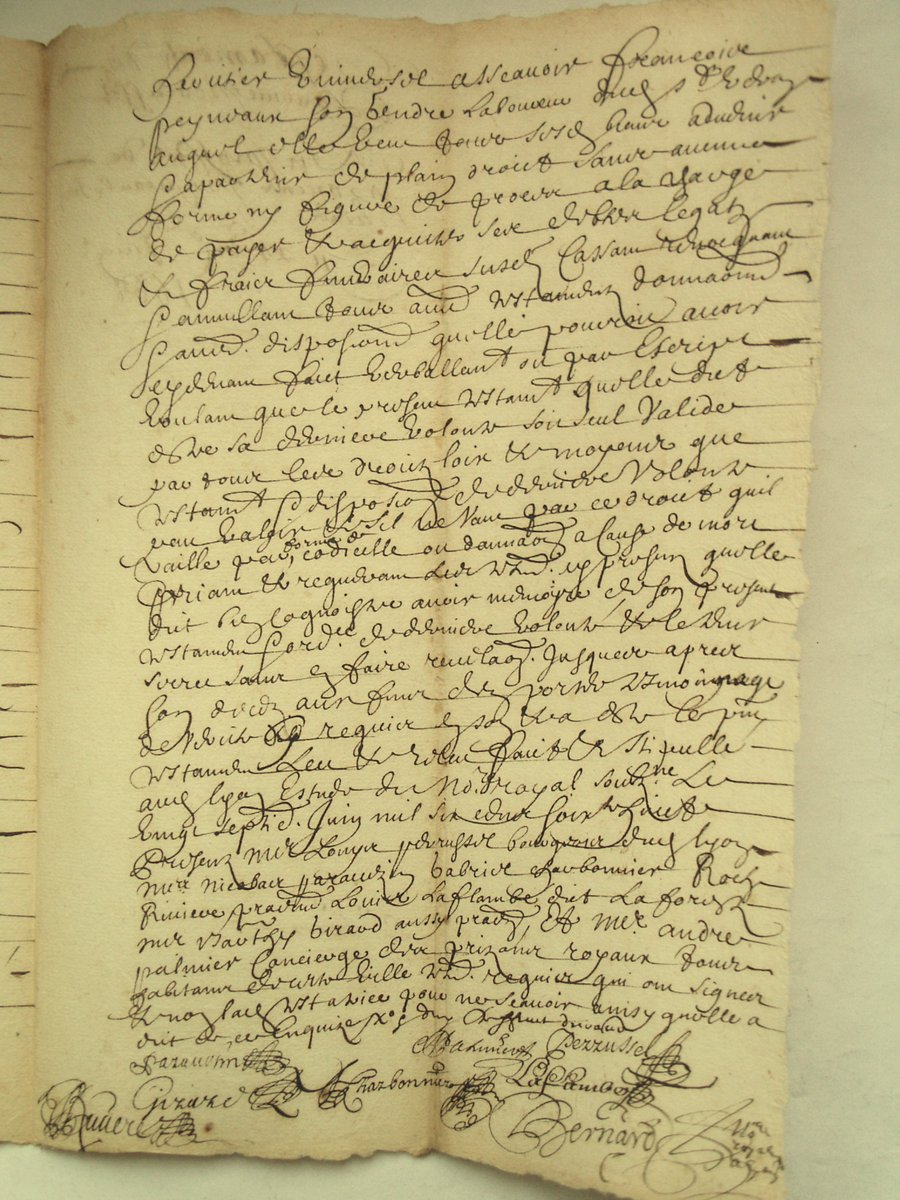 heritier universel asseavoir Francoise
peyneaux son gendre laboureur dud
auquel elle veut tous sesd biens advenir
appartenir de plain droict sans aucune
forme ny figure de proces a la charge
de payer & acquitter ses debtes legatz
& fraiz funeraires susd Cassant revocquant
& annullant tous aud testamentz donnaond
& aud. dispositions quelle pourroit avoir
cydevant faict verballemt ou par Escript
voulant que le present testamt quelle dict
estre sa derniere volonte soit seul valide
par tous les droictz loix & moyens que
testamt & disposiõ de derniere volonte
peut valoir & sil ne vaut par ce droict quil
vaille par forme de codicille ou donnaon a cause de mort
Priant & requerant les tesm. cy presens quelle
dict bien cognoistre avoir memoire de son present
testament & ord. de derniere volonte & le tenir
secret sans en faire revelaon. Jusques apres
son deces aux fins den porter tesmoingnage
de verite requis en son & a este le pnt
testament leu & releu faict & stipulle
aud lyon Estude du No.re royal soubz.ne Le
vingt septie. Juin mil six cens soixte huict
Presens mre Louys perussel bourgeois dud lyon
mre nicolas paraudin Gabriel charbonnier Roch
Riviere praticien Louis Laflambe dict La forest
mre Barthy Giraud aussy praticien, Et mre andre
palmier Concierge des prizons royaux tous
habitans de cette ville tesm. requis qui ont signez
& non lad testatrice pour ne scavoir ainsy quelle a
dit de ce Enquize
Paraudin Palmier Perrussel
Girard Charbonnier Laflambe
Riviere Bernard